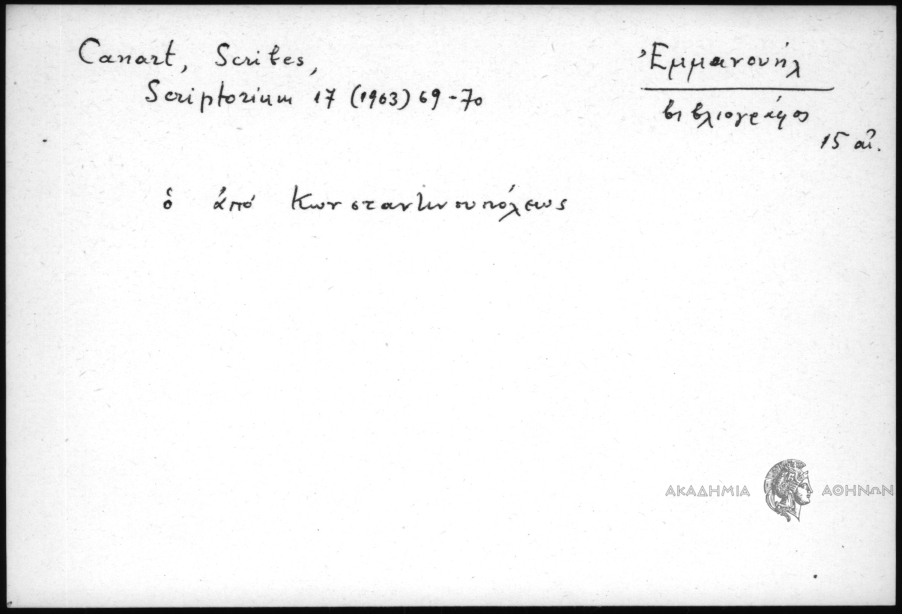 Canart, Scribes,
Scriptorium 17 (1963) 69-70
Ἐμμανουήλ
βιβλιογράφος
15 αἰ.
ὁ ἀπό Κωνσταντινουπόλεως
ΑΚΑΔΗΜΙΑ ΑΘΗΝΩΝ